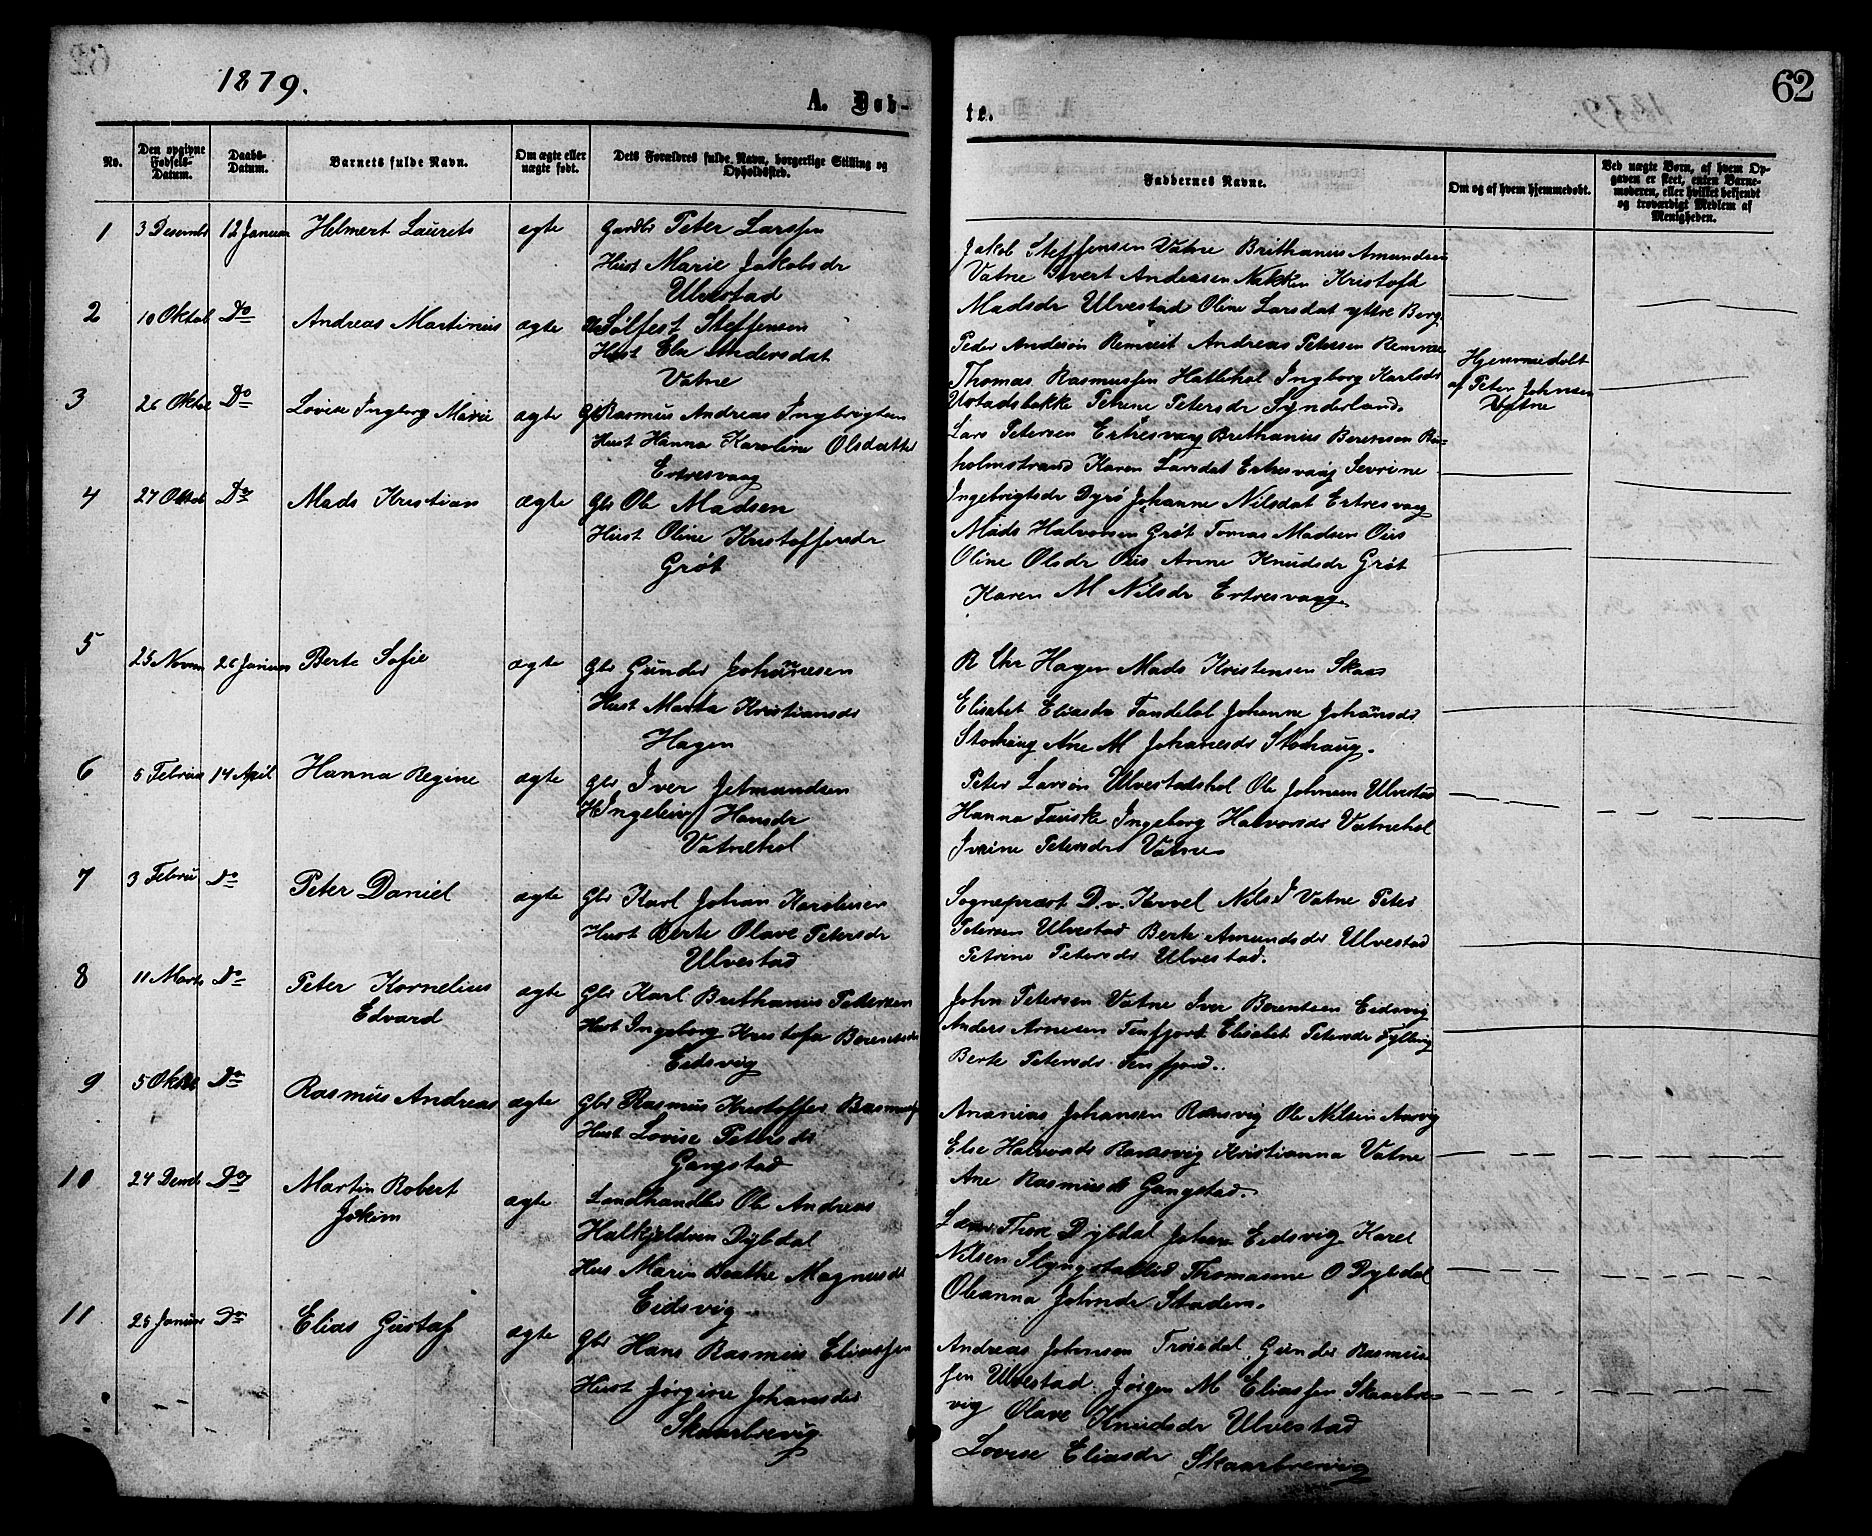 1879.
A. Døb-
No.
Den opgivne Fødsels-Datum.
Daabs-Datum.
Barnets fulde Navn.
Om ægte eller uægte født.
Dets Forældres fulde Navn, borgerlige Stilling og Opholdssted.
1 3 Desembr 12 Januar Helmert Laurits ægte Gaardbr Peter Larssen
Hust Marie Jakobsdr
Ulvestad
2 10 Oktob Do Andreas Martinus ægte Sølfest Steffensen
Hust Ele Andersdat
Vatne
3 26 Oktob Do Lovise Ingborg Marie ægte Gbr Rasmus Andreas Ingbrigtsen
Hust Hanna Karoline Olsdatter
Ertresvaag
4 27 Oktob Do Mads Kristian ægte Gbr Ole Madsen
Hust Oline Kristoffersdr
Grøt
5 25 Novem 26 Januar Berte Sofie ægte Gbr Gunder Johannesen
Hust Marta Kristiansdr
Hagen
6 5 Februar 14 April Hanna Regine ægte Gbr Iver Jetmundsen
H Ingeleiv Hansdr
Vatnehol
7 3 Febru Do Peter Daniel ægte Gbr Karl Johan Karolusen
Hust Berte Olave Petersdr
Ulvestad
8 11 Marts Do Peter Kornelius ægte Gbr Karl Brithanus Pettersen
Edvard Hust Ingeborg Kristofa Berentsdr
Eidsvig
9 5 Oktob Do Rasmus Andreas ægte Gbr Rasmus Kristoffer Rasmussen
Hust Lovise Petersdr
Gangstad
10 24 Do Martin Robert ægte Landhandler Ole Andreas
Jokim Halkjeldsen Dybdal
Hus Marie Beathe Magnusdt
Eidsvig
11 25 Januar Do Elias Gustaf ægte Gbr Hans Rasmus Eliassen
Hust Jørgine Johansdr
Skaarbrevig
62
te.
Faddernes Navne.
Om og af hvem hjemmedøbt.
Ved uægte Børn, af hvem Opgaven er skeet, enten Barnemoderen, eller hvilket bekjendt og troværdigt Medlem af Menigheden.
Jakob Steffensen Vatne Brithanus Amundsen
Vatne Sivert Andersen Nakken Kristofa
Madsdr Ulvestad Oline Larsdat yttre Borg
Peder Andersøn Remveit Andreas Petersen Remvei
Thomas Rasmussen Hattehol Ingborg Karlsdr
Ulstadbakke Petrine Petersdr Synderland.
Hjemmedøbt
af Peter Johnsen
Vatne
Lars Petersen Ertresvaag Brithanius Berensen
holmstrand Karen Larsdat Ertresvaag Sevrine
Ingebrigtsdr Dyrø Johanne Nilsdat Ertresvaag
Mads Halvorsen Grøt Tomas Madsen Ous
Oline Olsdr Ous Anne Knudsdr Grøt
Karen M Nilsdr Ertresvaag
R Chr Hagen Mads Kristensen Skaar
Elisabet Eliasdr Johanne Johansdr
Ane M Johanesdr
Peter Larsøn Ulvestadshol Ole Johnsen Ulvestad
Hanna Fauske Ingeborg Halvorsdr Vatnehol
Ivrine Petersdr Vatne
Sogneprest D. v. Krovel Nils J Vatne Peter
Petersen Ulvestad Berte Amundsdr Ulvestad
Petrine Petersdr Ulvestad.
John Petersen Vatne Iver Berentsen Eidsvig
Anders Arnesen Tenfjord Elisabet Petersdr Fylling
Berte Petersdr Tenfjord.
Ananias Johansen Ramsvig Ole Nilsen
Else Halvorsdr Ramsvig Kristianna Vatne
Ane Rasmusdr Gangstad.
Thore Dybdal Johan Eidsvig Karel
Nilsen Slyngstadlid Thomasine O Dybdal
Oleanna Johnsdr Stadem.
Andreas Johnsen Gunder Rasmus
sen Ulvestad Jørgen M Eliassen Skaarbre-
vig Olave Knudsdr Ulvestad
Lovise Eliasdr Skaarbrevig